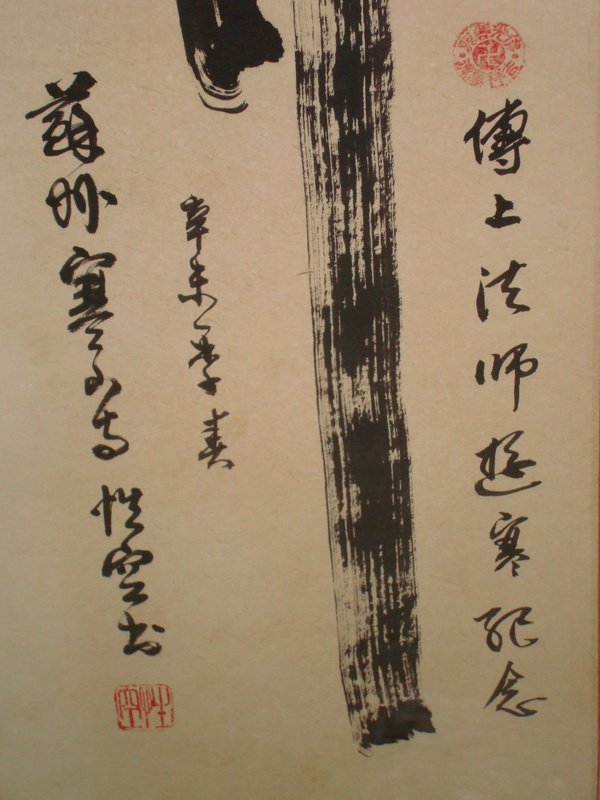 傳上法師遊寒紀念
辛未季春
蘇州寒山寺性空書
性空